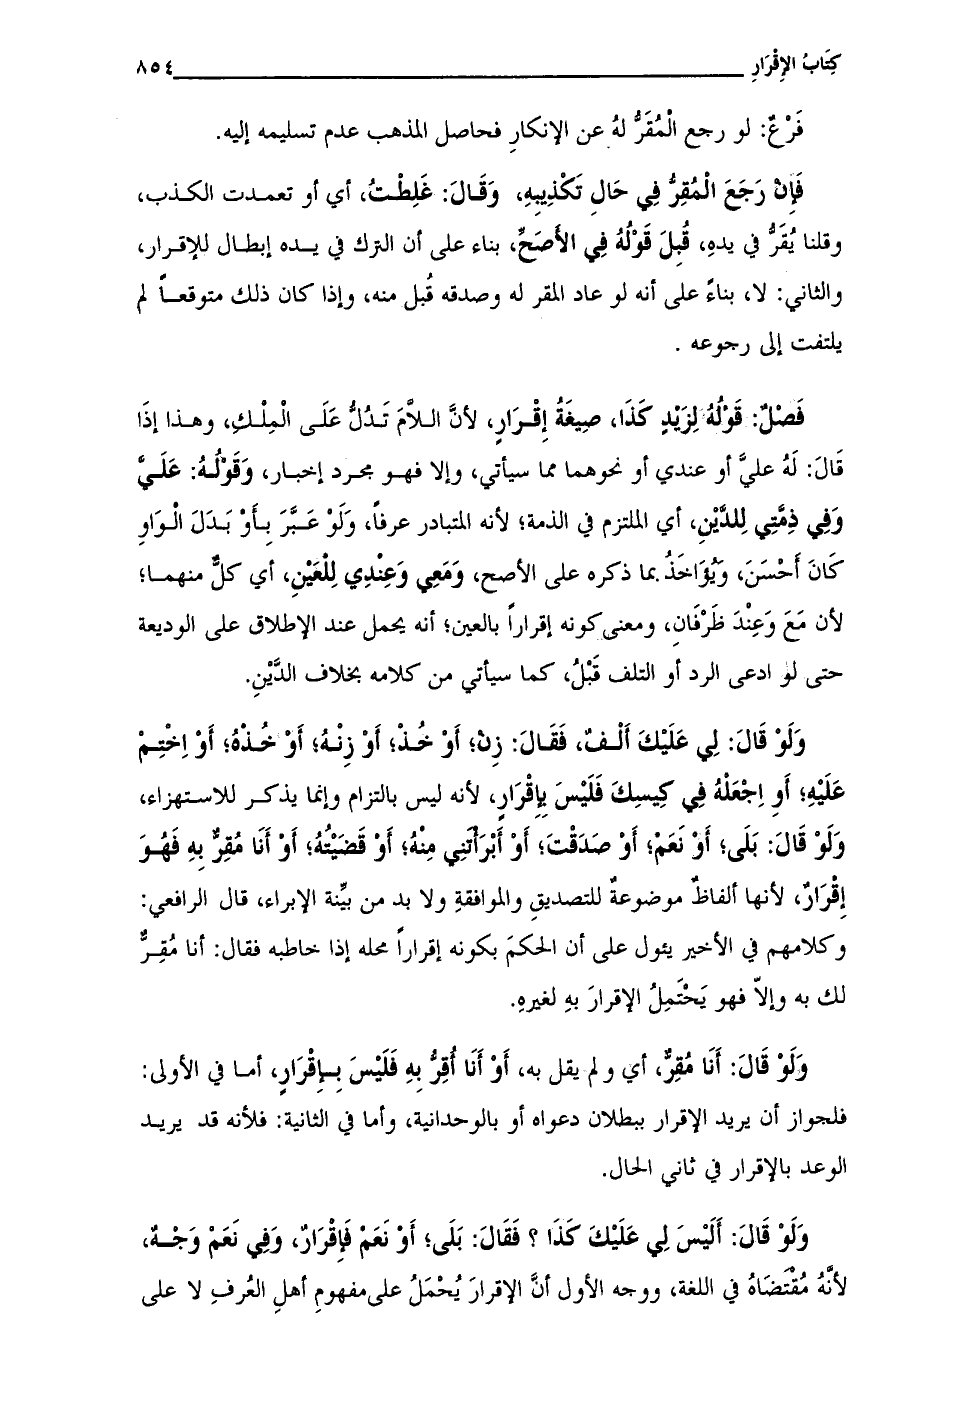 كِتَابُ الإِقْرَارِ ٨٥٤
فَرْعٌ: لو رجع الْمُقَرُّ لهُ عن الإنكارِ فحاصل المذهب عدم تسليمه إليه.
فَإِنْ رَجَعَ الْمُقِرُّ فِي حَالِ تَكْذِيبِهِ، وَقَالَ: غَلِطْتُ، أي أو تعمدت الكذب،
وقلنا يُقَرُّ في يدهِ، قُبِلَ قَوْلُهُ فِي الأَصَحِّ، بناء على أن الترك في يده إبطال للإقرار،
والثاني: لا، بناءً على أنه لو عاد المقر له وصدقه قُبل منه، وإذا كان ذلك متوقعاً لم
يلتفت إلى رجوعه .
فَصْلٌ: قَوْلُهُ لِزَيْدٍ كَذَا، صِيغَةُ إِقْرَارٍ، لأنَّ اللاَّمَ تَدُلُّ عَلَى الْمِلْكِ، وهذا إذَا
قَالَ: لَهُ عليَّ أو عندي أو نحوهما مما سيأتي، وإلا فهو مجرد إخبار، وَقَوْلُهُ: عَلَيَّ
وَفِي ذِمَّتِي لِلدَّيْنِ، أي الملتزم في الذمة؛ لأنه المتبادر عرفاً، وَلَوْ عَبَّرَ بِأَوْ بَدَلَ الْوَاوِ
كَانَ أَحْسَنَ، وَيُؤَاخَذُ بما ذكره على الأصح، وَمَعِي وَعِنْدِي لِلْعَيْنِ، أي كلٌّ منهما؛
لأن مَعَ وَعِنْدَ ظَرْفَانِ، ومعنى كونه إقراراً بالعين؛ أنه يحمل عند الإطلاق على الوديعة
حتى لو ادعى الرد أو التلف قَبْلُ، كما سيأتي من كلامه بخلاف الدَّيْنِ.
وَلَوْ قَالَ: لِي عَلَيْكَ أَلْفٌ، فَقَالَ: زِنْ؛ أَوْ خُذْ؛ أَوْ زِنْهُ؛ أَوْ خُذْهُ؛ أَوْ اِخْتِمْ
عَلَيْهِ؛ أَوِ اِجْعَلْهُ فِي كِيسِكَ فَلَيْسَ بِإِقْرَارٍ، لأنه ليس بالتزام وإنما يذكر للاستهزاء،
وَلَوْ قَالَ: بَلَى؛ أَوْ نَعَمْ؛ أَوْ صَدَقْتَ؛ أَوْ أَبْرَأْتَنِي مِنْهُ؛ أَوْ قَضَيْتُهُ؛ أَوْ أَنَا مُقِرٌّ بِهِ فَهُوَ
إِقْرَارٌ، لأنها ألفاظٌ موضوعةٌ للتصديقِ والموافقةِ ولا بد من بيِّنة الإبراء، قال الرافعي:
وكلامهم في الأخير يئول على أن الحكمَ بكونه إقراراً محله إذا خاطبه فقال: أنا مُقِرٌّ
لك به وإلاّ فهو يَحْتَمِلُ الإقرارَ بهِ لغيرهِ.
وَلَوْ قَالَ: أَنَا مُقِرٌّ، أي ولم يقل به، أَوْ أَنَا أُقِرُّ بِهِ فَلَيْسَ بِإِقْرَارٍ، أما في الأولى:
فلجواز أن يريد الإقرار ببطلان دعواه أو بالوحدانية، وأما في الثانية: فلأنه قد يريد
الوعد بالإقرار في ثاني الحال.
وَلَوْ قَالَ: أَلَيْسَ لِي عَلَيْكَ كَذَا ؟ فَقَالَ: بَلَى؛ أَوْ نَعَمْ فَإِقْرَارٌ، وَفِي نَعَمْ وَجْهٌ،
لأنَّهُ مُقْتَضَاهُ في اللغة، ووجه الأول أنَّ الإقرارَ يُحْمَلُ على مفهومِ أهلِ العُرفِ لا على